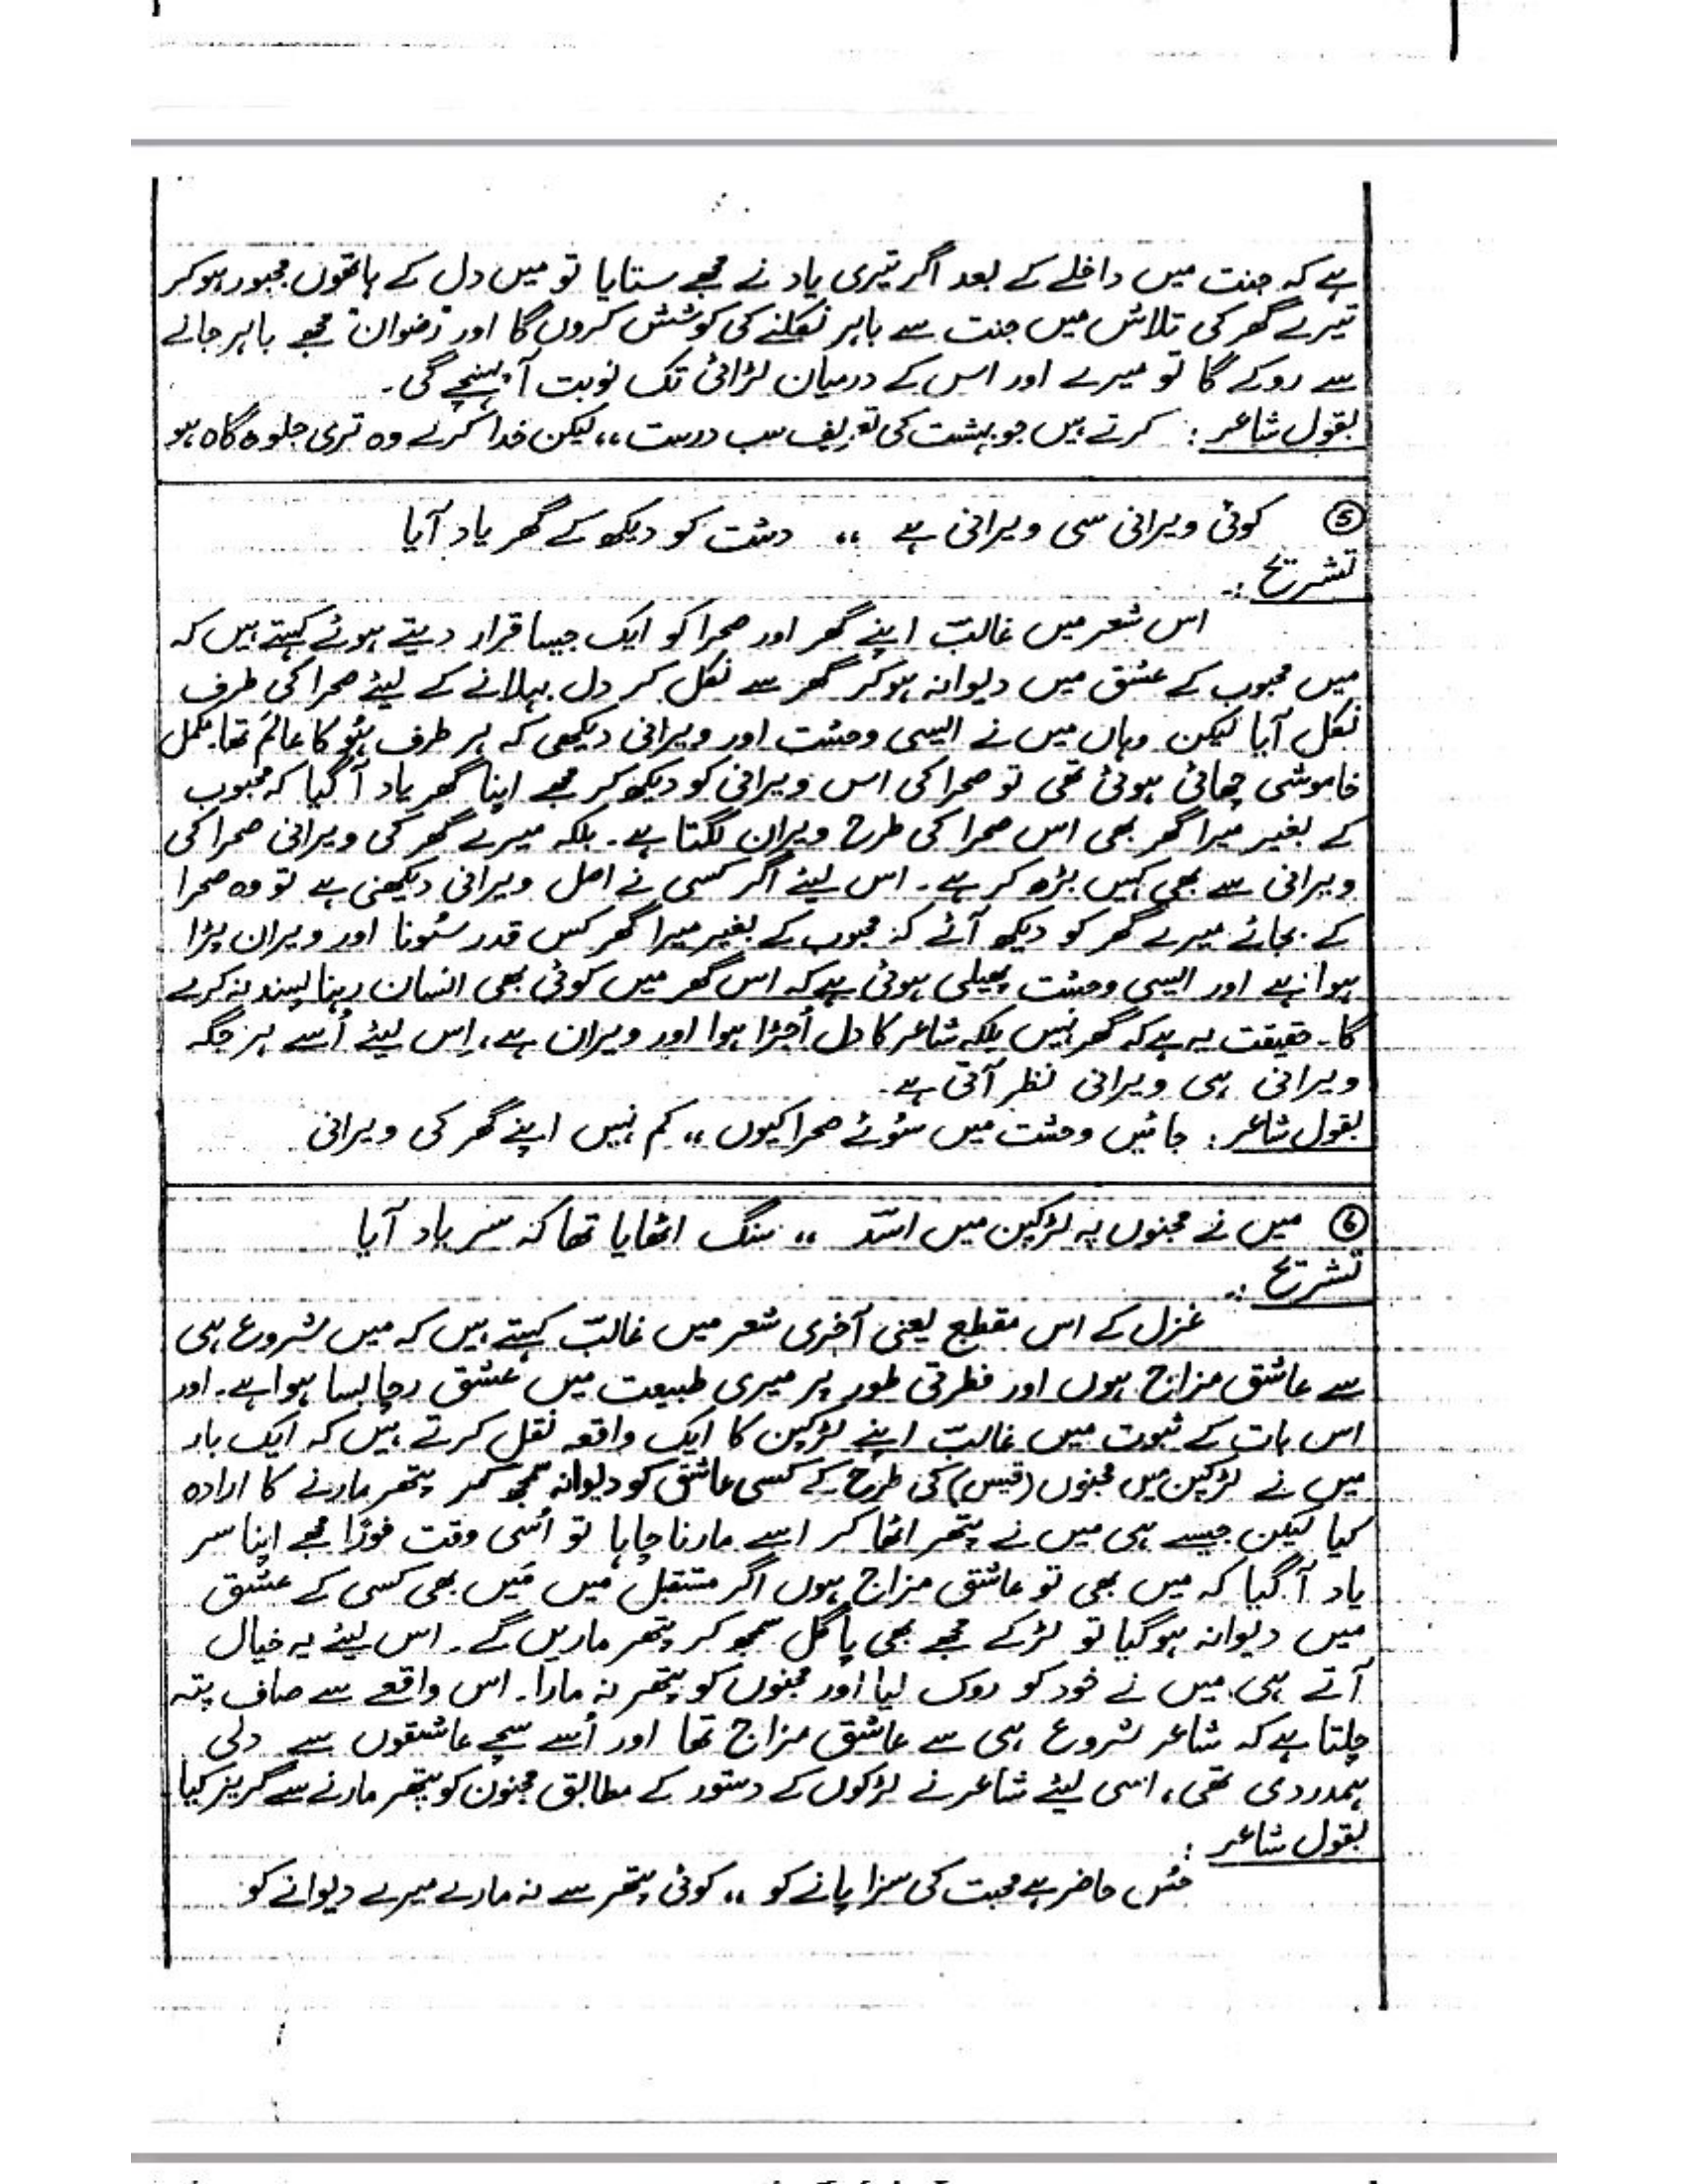 ہے کہ جنت میں داخلے کے بعد اگر تیری یاد نے مجھے ستایا تو میں دل کے ہاتھوں مجبور ہو کر
تیرے گھر کی تلاش میں جنت سے باہر نکلنے کی کوشش کروں گا اور "رضوان" مجھے باہر جانے
سے روکے گا تو میرے اور اس کے درمیان لڑائی تک نوبت آ پہنچے گی۔
بقول شاعر : کرتے ہیں جو بہشت کی تعریف سب درست ،، لیکن خدا کرے وہ تری جلوہ گاہ ہو
⑤ کوئی ویرانی سی ویرانی ہے ،، دشت کو دیکھ کے گھر یاد آیا
تشریح :۔
اس شعر میں غالبؔ اپنے گھر اور صحرا کو ایک جیسا قرار دیتے ہوئے کہتے ہیں کہ
میں محبوب کے عشق میں دیوانہ ہو کر گھر سے نکل کر دل بہلانے کے لیئے صحرا کی طرف
نکل آیا لیکن وہاں میں نے ایسی وحشت اور ویرانی دیکھی کہ ہر طرف ہُو کا عالَم تھا۔ مکمل
خاموشی چھائی ہوئی تھی تو صحرا کی اس ویرانی کو دیکھ کر مجھے اپنا گھر یاد آگیا کہ محبوب
کے بغیر میرا گھر بھی اس صحرا کی طرح ویران لگتا ہے۔ بلکہ میرے گھر کی ویرانی صحرا کی
ویرانی سے بھی کہیں بڑھ کر ہے۔ اس لیئے اگر کسی نے اصل ویرانی دیکھنی ہے تو وہ صحرا
کے بجائے میرے گھر کو دیکھ آئے کہ محبوب کے بغیر میرا گھر کس قدر سُونا اور ویران پڑا
ہوا ہے اور ایسی وحشت پھیلی ہوئی ہے کہ اس گھر میں کوئی بھی انسان رہنا پسند نہ کرے
گا۔ حقیقت یہ ہے کہ گھر نہیں بلکہ شاعر کا دل اُجڑا ہوا اور ویران ہے، اِس لیئے اُسے ہر جگہ
ویرانی ہی ویرانی نظر آتی ہے۔
بقول شاعر : جائیں وحشت میں سُوئے صحرا کیوں ،، کم نہیں اپنے گھر کی ویرانی
⑥ میں نے مجنوں پہ لڑکپن میں اسؔد ،، سنگ اٹھایا تھا کہ سر یاد آیا
تشریح :۔
غزل کے اس مقطع یعنی آخری شعر میں غالبؔ کہتے ہیں کہ میں شروع ہی
سے عاشق مزاج ہوں اور فطرتی طور پر میری طبیعت میں عشق رچا بسا ہوا ہے۔ اور
اس بات کے ثبوت میں غالبؔ اپنے لڑکپن کا ایک واقعہ نقل کرتے ہیں کہ ایک بار
میں نے لڑکپن میں مجنوں (قیس) کی طرح کے کسی عاشق کو دیوانہ سمجھ کر پتھر مارنے کا ارادہ
کیا لیکن جیسے ہی میں نے پتھر اٹھا کر اسے مارنا چاہا تو اُسی وقت فورًا مجھے اپنا سر
یاد آگیا کہ میں بھی تو عاشق مزاج ہوں اگر مستقبل میں مَیں بھی کسی کے عشق
میں دیوانہ ہوگیا تو لڑکے مجھے بھی پاگل سمجھ کر پتھر ماریں گے۔ اس لیئے یہ خیال
آتے ہی میں نے خود کو روک لیا اور مجنوں کو پتھر نہ مارا۔ اس واقعے سے صاف پتہ
چلتا ہے کہ شاعر شروع ہی سے عاشق مزاج تھا اور اُسے سچے عاشقوں سے دلی
ہمدردی تھی، اسی لیئے شاعر نے لڑکوں کے دستور کے مطابق مجنون کو پتھر مارنے سے گریز کیا
بقول شاعر :
حُسن حاضر ہے محبت کی سزا پانے کو ،، کوئی پتھر سے نہ مارے میرے دیوانے کو